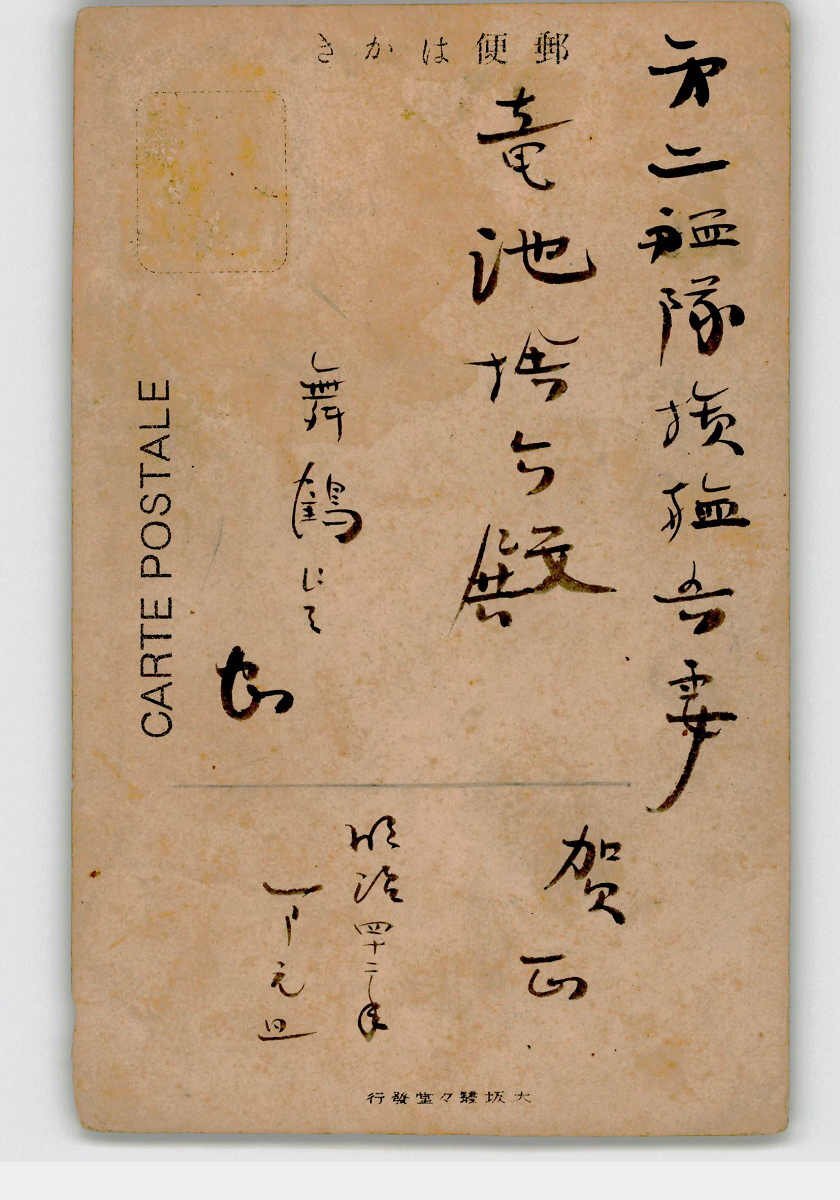 郵便はかき
第二艦隊旗艦吾妻
竜池 殿
舞鶴にて
賀正
明治四十二年
一月元旦
CARTE POSTALE
大坂 々堂發行